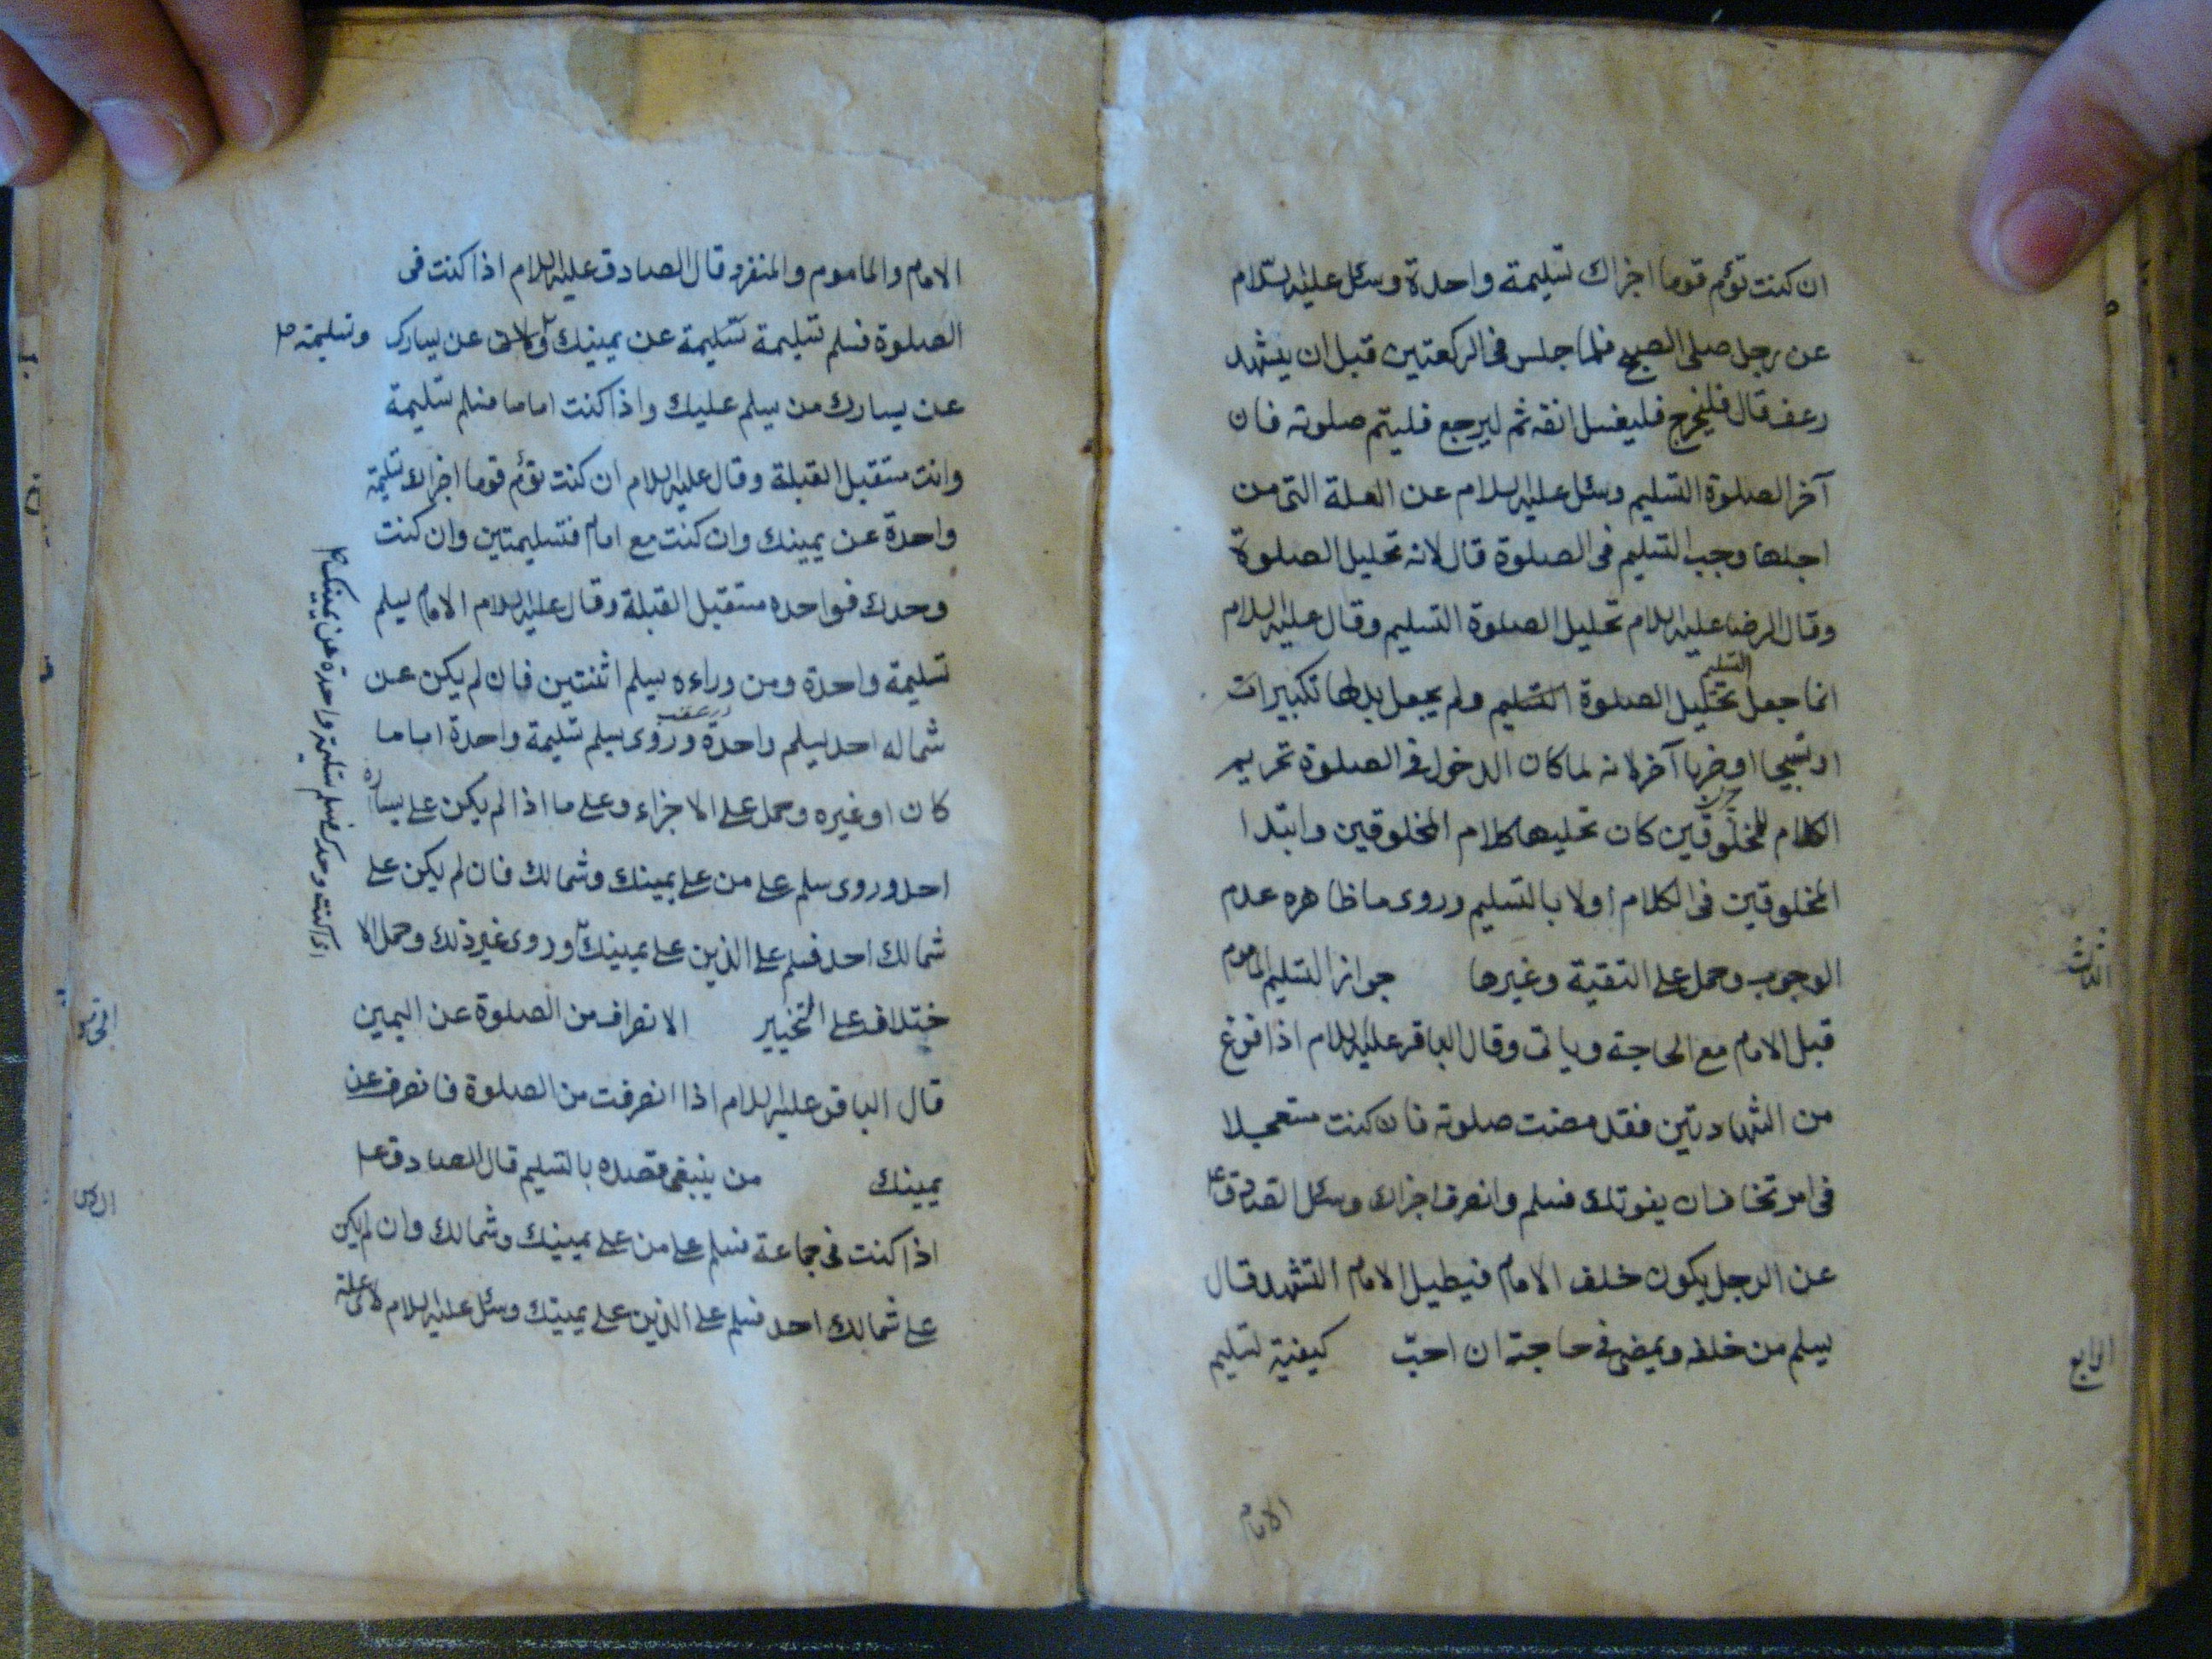 ان كنت تؤم قوما اجزاك تسليمة واحدة وسئل عليه السلام
عن رجل صلى الصبح فلما جلس فى الركعتين قبل ان يتشهد
رعف قال فليخرج فليغسل انفه ثم ليرجع فليتم صلوته فان
آخر الصلوة التسليم وسئل عليه السلام عن العلة التى من
اجلها وجب التسليم فى الصلوة قال لانه تحليل الصلوة
وقال الرضا عليه السلام تحليل الصلوة التسليم وقال عليه السلام
التسليم
انما جعل تحليل الصلوة التسليم ولم يجعل بدلها تكبيرات
او تسبيحا او ضربا آخر لانه لما كان الدخول فى الصلوة تحريم
الكلام للمخلوقين كان تحليلها كلام المخلوقين وابتدا
المخلوقين فى الكلام اولا بالتسليم وروى ما ظاهره عدم
الوجوب وحمل على التقية وغيرها جواز التسليم للماموم
الثالث
قبل الامام مع الحاجة وياتى وقال الباقر عليه السلام اذا فرغ
من الشهادتين فقد مضت صلوته فان كنت مستعجلا
فى امر تخاف ان يفوتك فسلم وانصرف اجزاك وسئل الصادق ع
عن الرجل يكون خلف الامام فيطيل الامام التشهد قال
يسلم من خلفه ويمضى فى حاجته ان احبّ كيفية تسليم
الرابع
الامام
الامام والماموم والمنفرد قال الصادق عليه السلام اذا كنت فى
الصلوة فسلم تسليمة تسليمة عن يمينك عن يسارك وتسليمة
عن يسارك من يسلم عليك واذا كنت اماما فسلم تسليمة
وانت مستقبل القبلة وقال عليه السلام ان كنت تؤم قوما اجزاك تسليمة
واحدة عن يمينك وان كنت مع امام فتسليمتين وان كنت
وحدك فواحده مستقبل القبلة وقال عليه السلام الامام يسلم
تسليمة واحدة ومن وراءه يسلم اثنتين فان لم يكن عن
شماله احد يسلم واحدة وروى يسلم تسليمة واحدة اماما
كان او غيره وحمل على الاجزاء وعلى ما اذا لم يكن على يساره
احد وروى سلم على من على يمينك وشمالك فان لم يكن على
شمالك احد فسلم على الذين على يمينك وروى غير ذلك وحمل الا
اذا كنت وحدك فسلم تسليمة واحدة عن يمينك
ختلاف على التخيير الانصراف من الصلوة عن اليمين
قال الباقر عليه السلام اذا انصرفت من الصلوة فانصرف عن
يمينك من ينبغى قصده بالتسليم قال الصادق ع
اذا كنت فى جماعة فسلم على من على يمينك وشمالك وان لم يكن
على شمالك احد فسلم على الذين على يمينك وسئل عليه السلام لاى علة